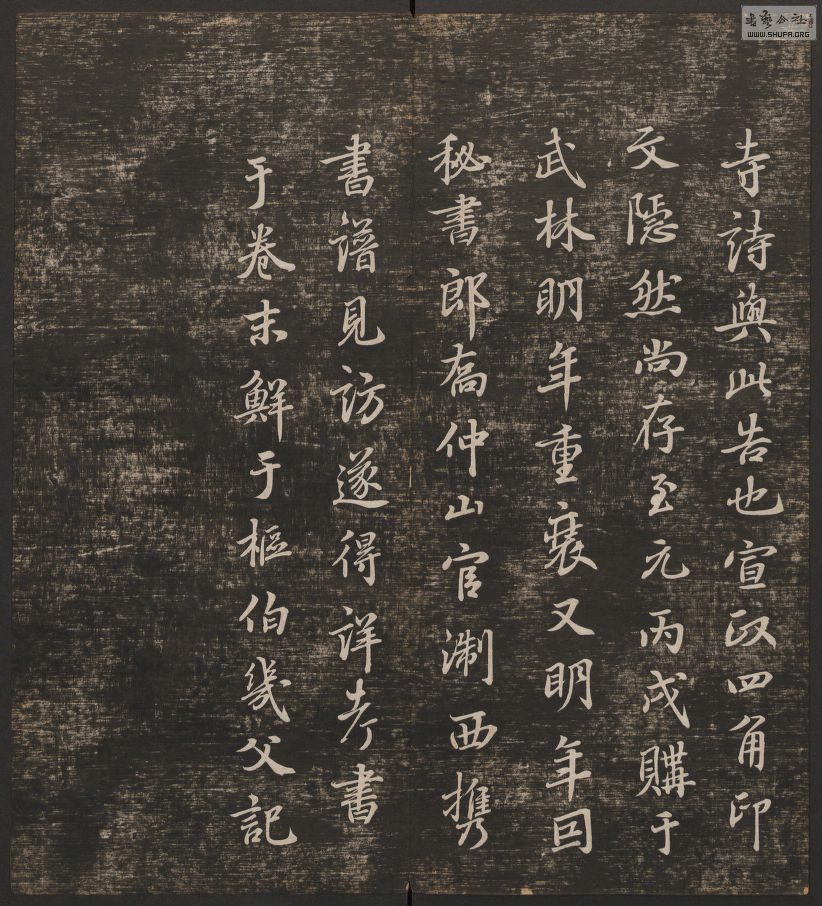 寺詩與此告也宣政四角印
文隱然尚存至元丙戌購于
武林明年重裝又明年因
秘書郎喬仲山官淛西携
書譜見訪遂得詳考書
于卷末鮮于樞伯幾父記
書藝公社
WWW.SHUFA.ORG